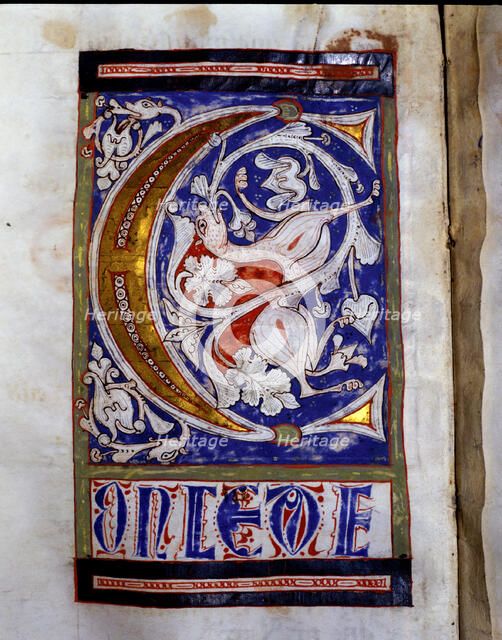 C
ONCEDE
Heritage Heritage Heritage
Heritage Heritage
Heritage Heritage